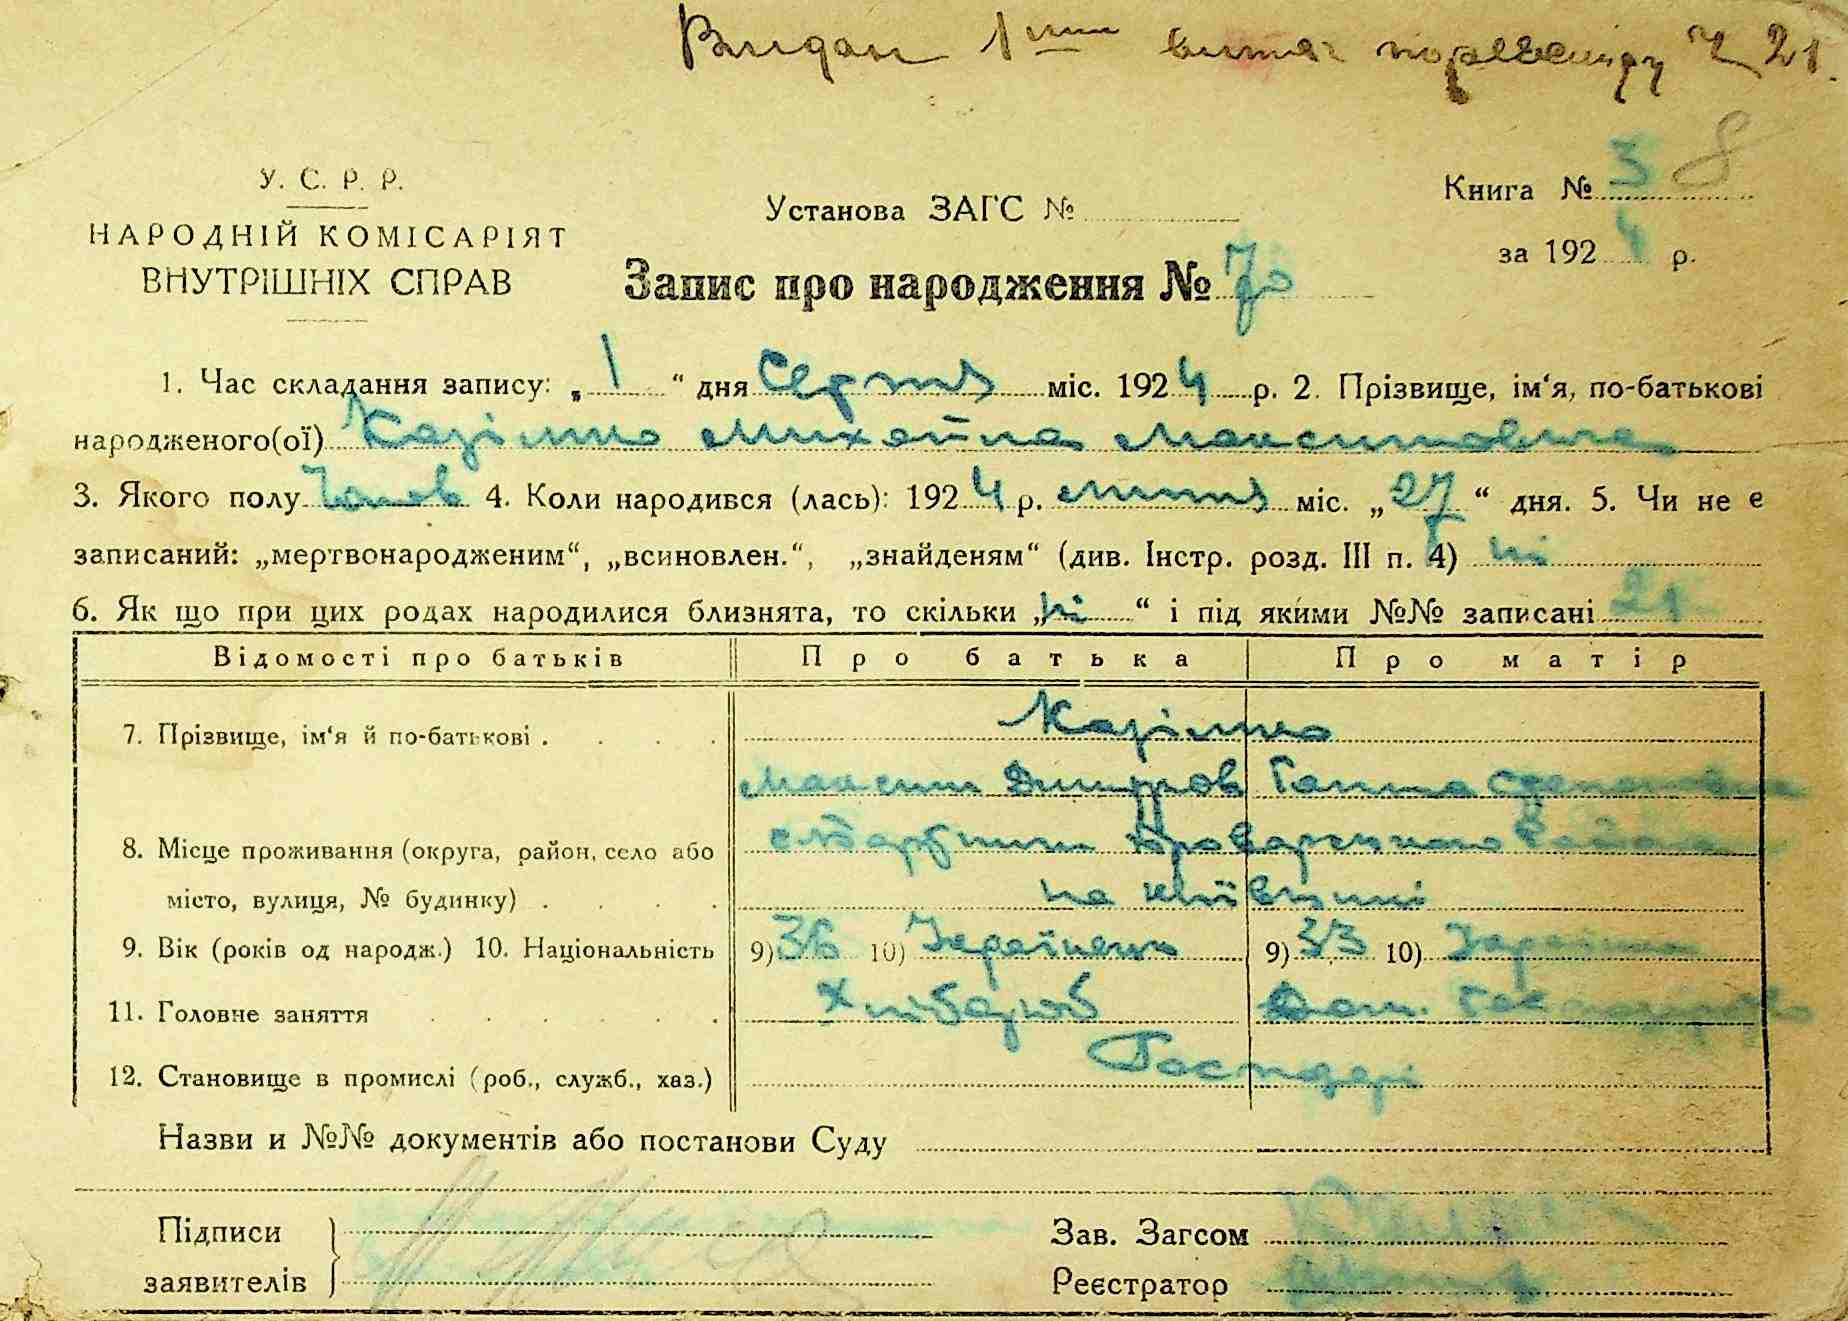 Видан 1им витяг по реєстру Ч 21.
У. С. Р. Р.
НАРОДНІЙ КОМІСАРІЯТ
ВНУТРІШНІХ СПРАВ
Установа ЗАГС №
Книга № 3 8
за 1924 р.
Запис про народження № 70
1. Час складання запису: „ 1 “ дня Серпня міс. 1924 р. 2. Прізвище, ім‘я, по-батькові
народженого(ої) Казімко Михайла Максимовича
3. Якого полу Чолов 4. Коли народився (лась): 1924 р. липня міс. „ 27 “ дня. 5. Чи не є
записаний: „мертвонародженим“, „всиновлен.“, „знайденям“ (див. Інстр. розд. III п. 4) ні
6. Як що при цих родах народилися близнята, то скільки „ ні “ і під якими №№ записані 21
Відомості про батьків Про батька Про матір
7. Прізвище, ім‘я й по-батькові . Казімко
Максим Дмитров Ганна Степановна
8. Місце проживання (округа, район, село або Броварського Району
місто, вулиця, № будинку) . на Київщині
9. Вік (років од народж.) 10. Національність 9) 36 10) Українець 9) 33 10) Українка
11. Головне заняття Хлібороб Дом. Господар
12. Становище в промислі (роб., служб., хаз.) Господарі
Назви и №№ документів або постанови Суду
Підписи
заявителів
Зав. Загсом
Реєстратор